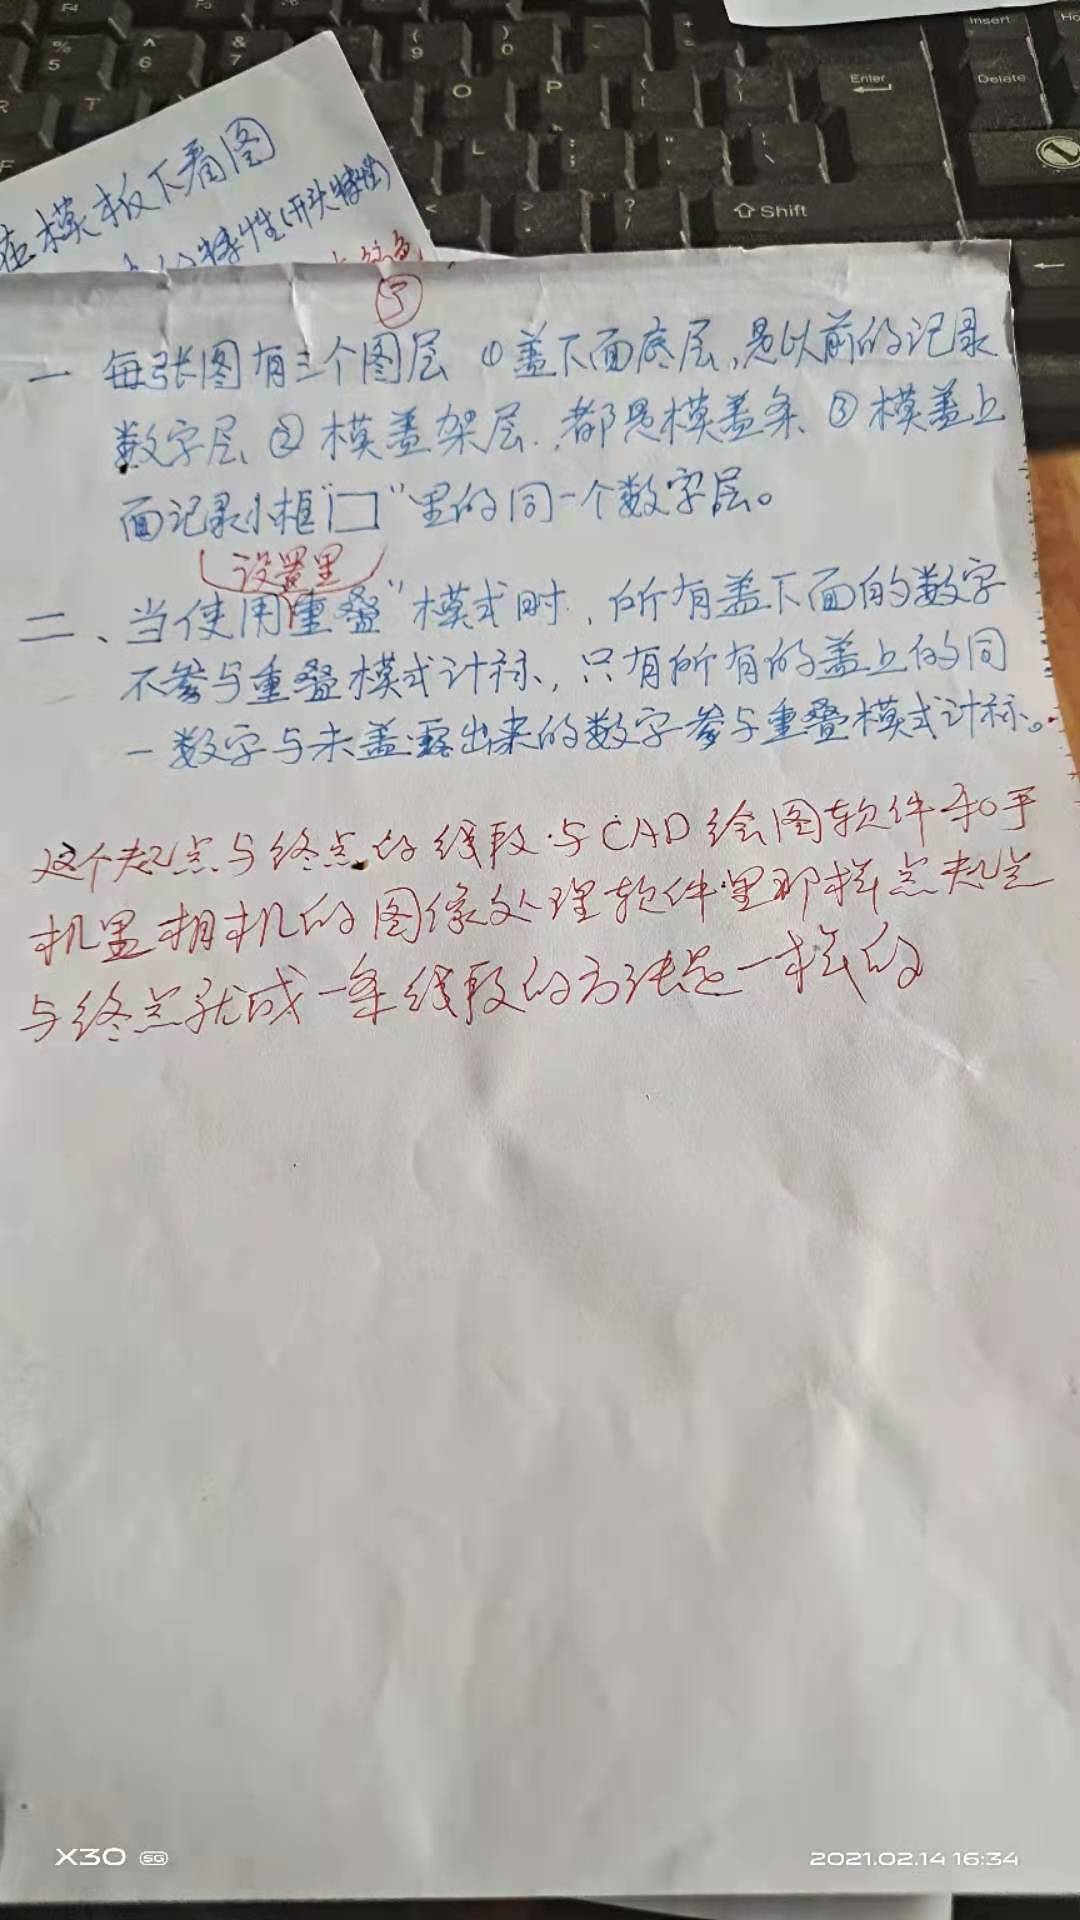 F4
%
5
^
6
&
7
(
9
)
0
R
T
O
P
L
Enter
Insert
Delete
Shift
在模板下看图
特性(开头特性)
⑤
一 每张图有三个图层 ①盖下面底层,是以前的记录
数字层 ②模盖架层.,都是模盖条 ③模盖上
面记录小框“囗”里的同一个数字层。
设置里
二、当使用重叠”模式时,所有盖下面的数字
不参与重叠模式计标,只有所有的盖上的同
一数字与未盖露出来的数字参与重叠模式计标。
这个起点与终点的线段与CAD绘图软件和手
机里相机的图像处理软件里那样点起点
与终点就成一条线段的方法是一样的
X30 5G
2021.02.14 16:34